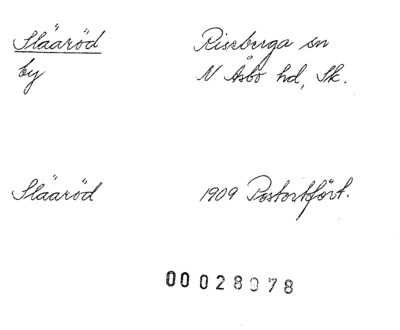 Slääröd Riseberga sn
by N Åsbo hd, Sk.
Slääröd 1909 Postortfört.
00028978